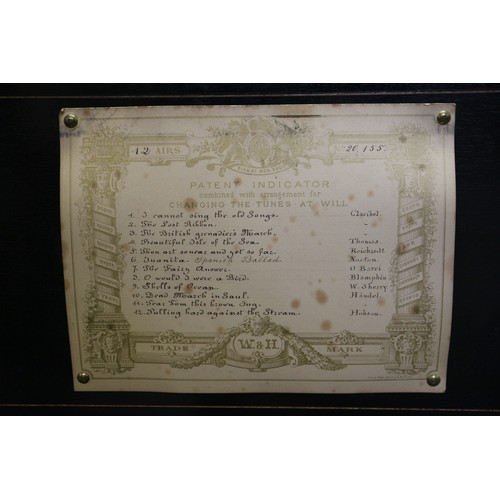 12 AIRS Nº 20,155.
PATENT INDICATOR
combined with arrangement for
CHANGING THE TUNES AT WILL
1. I cannot sing the old Songs. Claribel.
2. The Lost Ribbon. "
3. The British grenadier's March. "
4. Beautiful Isle of the Sea. Thomas
5. Thou art so near and yet so far. Reichardt
6. Juanita Spanish Ballad. Norton
7. The Fairy Answer.
8. O would I were a Bird. Blamphin
9. Shells of Ocean. W. Cherry
10. Dead March in Saul. Händel.
11. Fear Tom this brown Jug.
12. Pulling hard against the Stream. Hobson.
W & H.
TRADE MARK